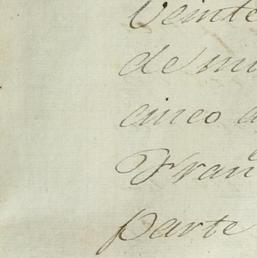 Veinte
de mi
cinco a
Fran
parte